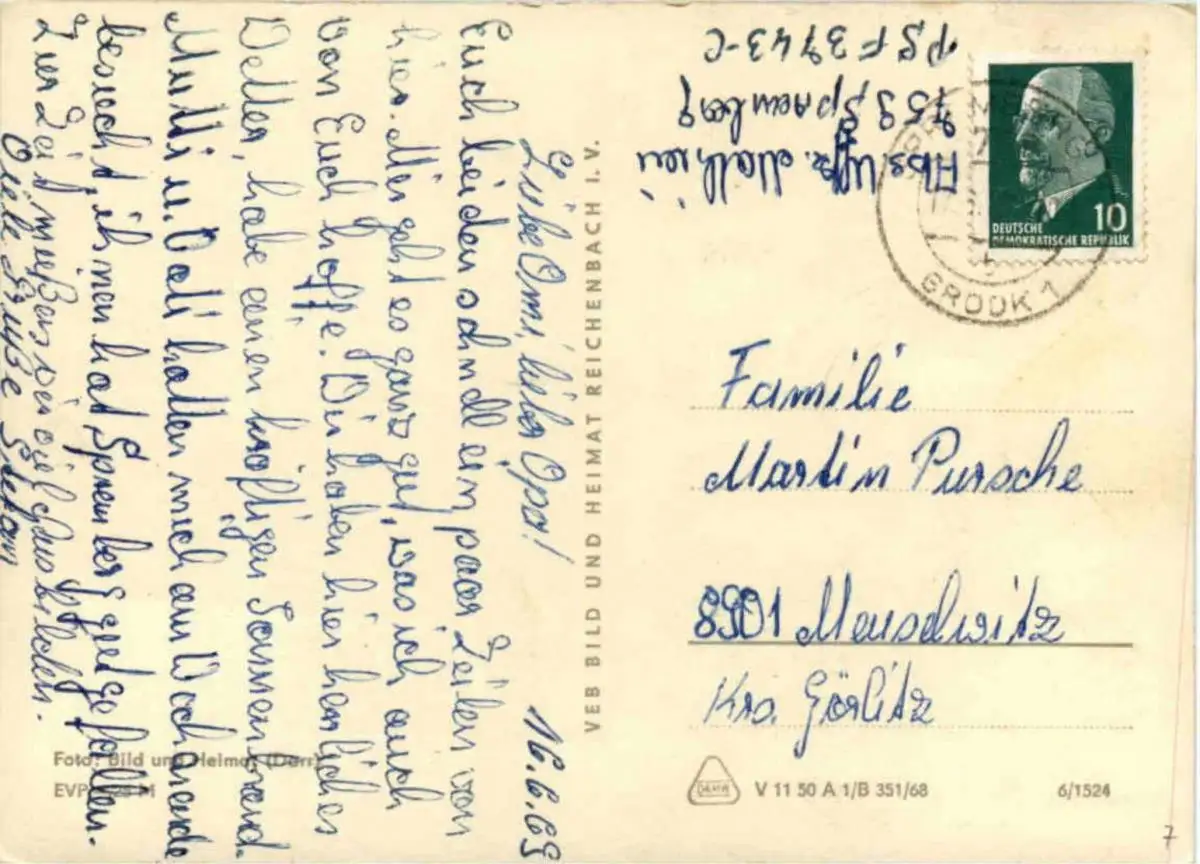 16.6.69
Liebe Omi, lieber Opa!
Euch beiden schnell ein paar Zeilen von
hier. Mir geht es ganz gut, was ich auch
von Euch hoffe. Wir haben hier herrliches
Wetter, habe einen kräftigen Sonnenbrand.
Mutti u. Vati hatten mich am Wochenende
besucht, ihnen hat Spremberg gut gefallen.
Zur Zeit müßen wir viel Ausbilden.
Viele Grüße Stefan
VEB BILD UND HEIMAT REICHENBACH I. V.
Abs. Uffz.
759 Spremberg
PSF 3743-C
DEUTSCHE
DEMOKRATISCHE REPUBLIK
10
BROOK 1
Familie
Martin Pursche
8901 Meuschwitz
Krs. Görlitz
Foto: Bild und Heimat (Darr)
EVP M
V 11 50 A 1/B 351/68
6/1524
7